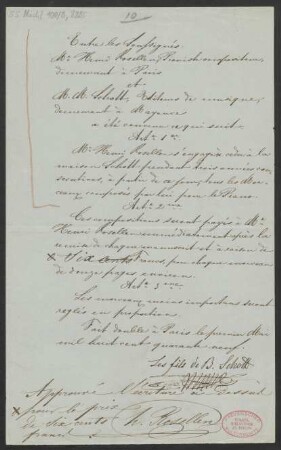 10
Entre les Soussignés
Mr. Henri Rosellen, Pianiste compositeur
demeurant à Paris
et
M.M. Schott, Editeurs de musique,
demeurant à Mayence
a été convenu ce qui suit.
Art. 1er
Mr. Henri Rosellen s'engage à céder à la
maison Schott pendant trois années con-
sécutives, à partir de ce jour, tous les Mor-
ceaux composés par lui pour le Piano
Art. 2me
Ces compositions seront payées à Mr.
Henri Rosellen immédiatement après la
remise de chaque manuscrit et à raison de
x Six cents francs, pour chaque morceau
de douze pages environ.
Art. 3me
Les morceaux moins importans seront
réglés en proportion.
Fait double à Paris le premier
mil huit cent quarante neuf.
Les fils de B. Schott
Approuvé l'écriture ci-dessus
x pour le prix
de six cents
francs
H. Rosellen